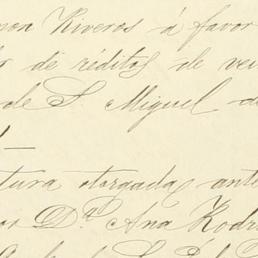 mon Riveros á favor
or de réditos de vei
de S. Miguel de

tura otorgada ante
or D.ª Ana Rodri